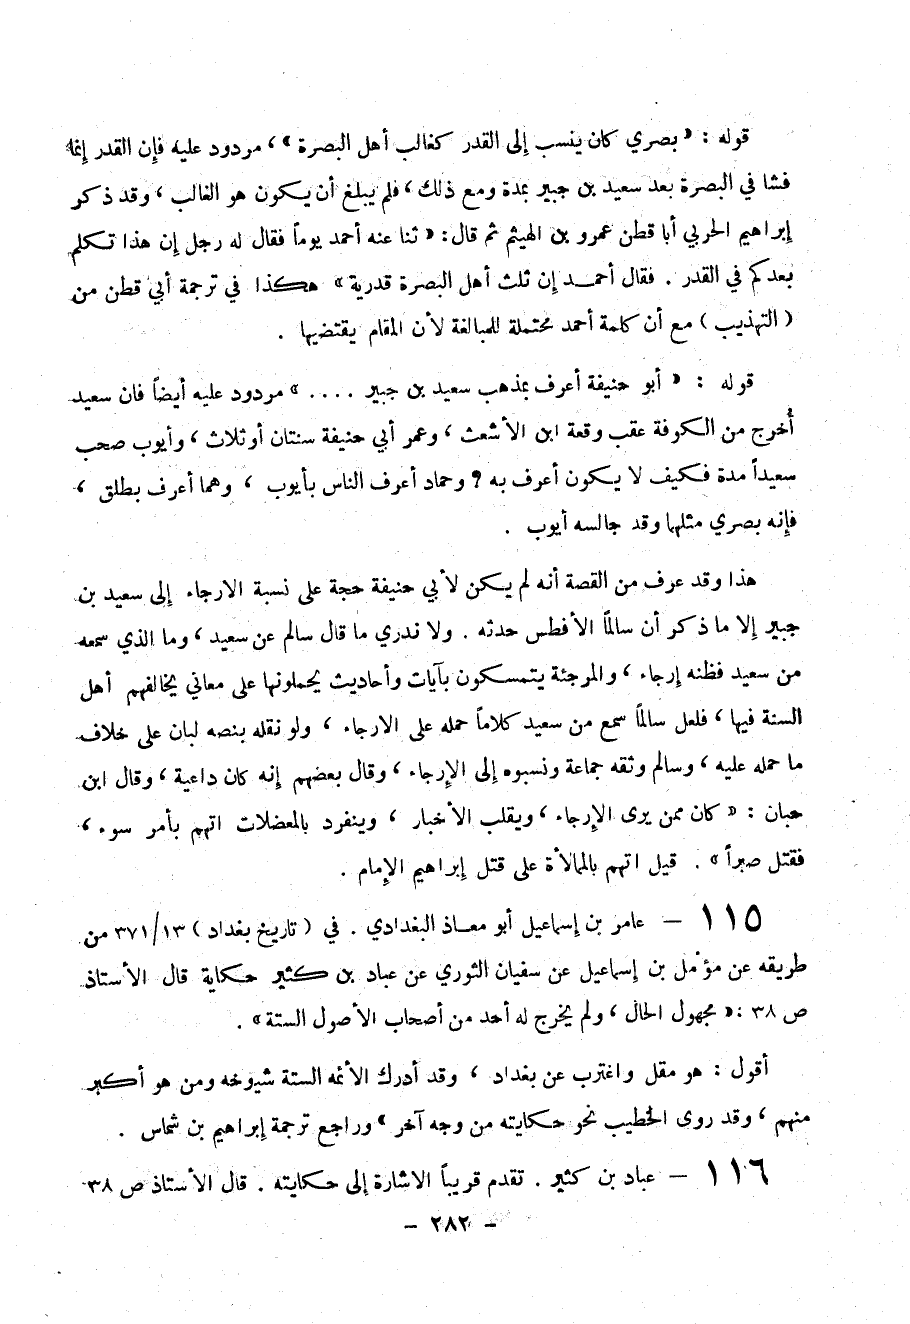 قوله : « بصري كان ينسب إلى القدر كغالب أهل البصرة » ، مردود عليه فإن القدر إنما
فشا في البصرة بعد سعيد بن جبير بمدة ومع ذلك ، فلم يبلغ أن يكون هو الغالب ، وقد ذكر
إبراهيم الحربي أبا قطن عمرو بن الهيثم ثم قال : « ثنا عنه أحمد يوماً فقال له رجل إن هذا تكلم
بعدكم في القدر . فقال أحمد إن ثلث أهل البصرة قدرية » هكذا في ترجمة أبي قطن من
( التهذيب ) مع أن كلمة أحمد محتملة للمبالغة لأن المقام يقتضيها .
قوله : « أبو حنيفة أعرف بمذهب سعيد بن جبير .... » مردود عليه أيضاً فان سعيد
أُخرج من الكوفة عقب وقعة ابن الأشعث ، وعمر أبي حنيفة سنتان أو ثلاث ، وأيوب صحب
سعيداً مدة فكيف لا يكون أعرف به ؟ وحماد أعرف الناس بأيوب ، وهما أعرف بطلق ،
فإنه بصري مثلهما وقد جالسه أيوب .
هذا وقد عرف من القصة أنه لم يكن لأبي حنيفة حجة على نسبة الارجاء إلى سعيد بن
جبير إلا ما ذكر أن سالماً الأفطس حدثه . ولا ندري ما قال سالم عن سعيد ، وما الذي سمعه
من سعيد فظنه إرجاء ، والمرجئة يتمسكون بآيات وأحاديث يحملونها على معاني يخالفهم أهل
السنة فيها ، فلعل سالماً سمع من سعيد كلاماً حمله على الارجاء ، ولو نقله بنصه لبان على خلاف
ما حمله عليه ، وسالم وثقه جماعة ونسبوه إلى الإرجاء ، وقال بعضهم إنه كان داعية ، وقال ابن
حبان : « كان ممن يرى الإرجاء ، ويقلب الأخبار ، وينفرد بالمعضلات اتهم بأمر سوء ،
فقتل صبراً » . قيل اتهم بالمالأة على قتل إبراهيم الإمام .
١١٥ – عامر بن إسماعيل أبو معاذ البغدادي . في ( تاريخ بغداد ) ٣٧١/١٣ من
طريقه عن مؤمل بن إسماعيل عن سفيان الثوري عن عباد بن كثير حكاية قال الأستاذ
ص ٣٨ : « مجهول الحال ، ولم يخرج له أحد من أصحاب الأصول الستة » .
أقول : هو مقل واغترب عن بغداد ، وقد أدرك الأئمة الستة شيوخه ومن هو أكبر
منهم ، وقد روى الخطيب نحو حكايته من وجه آخر » وراجع ترجمة إبراهيم بن شماس .
١١٦ – عباد بن كثير . تقدم قريباً الاشارة إلى حكايته . قال الأستاذ ص ٣٨
– ٢٨٢ –